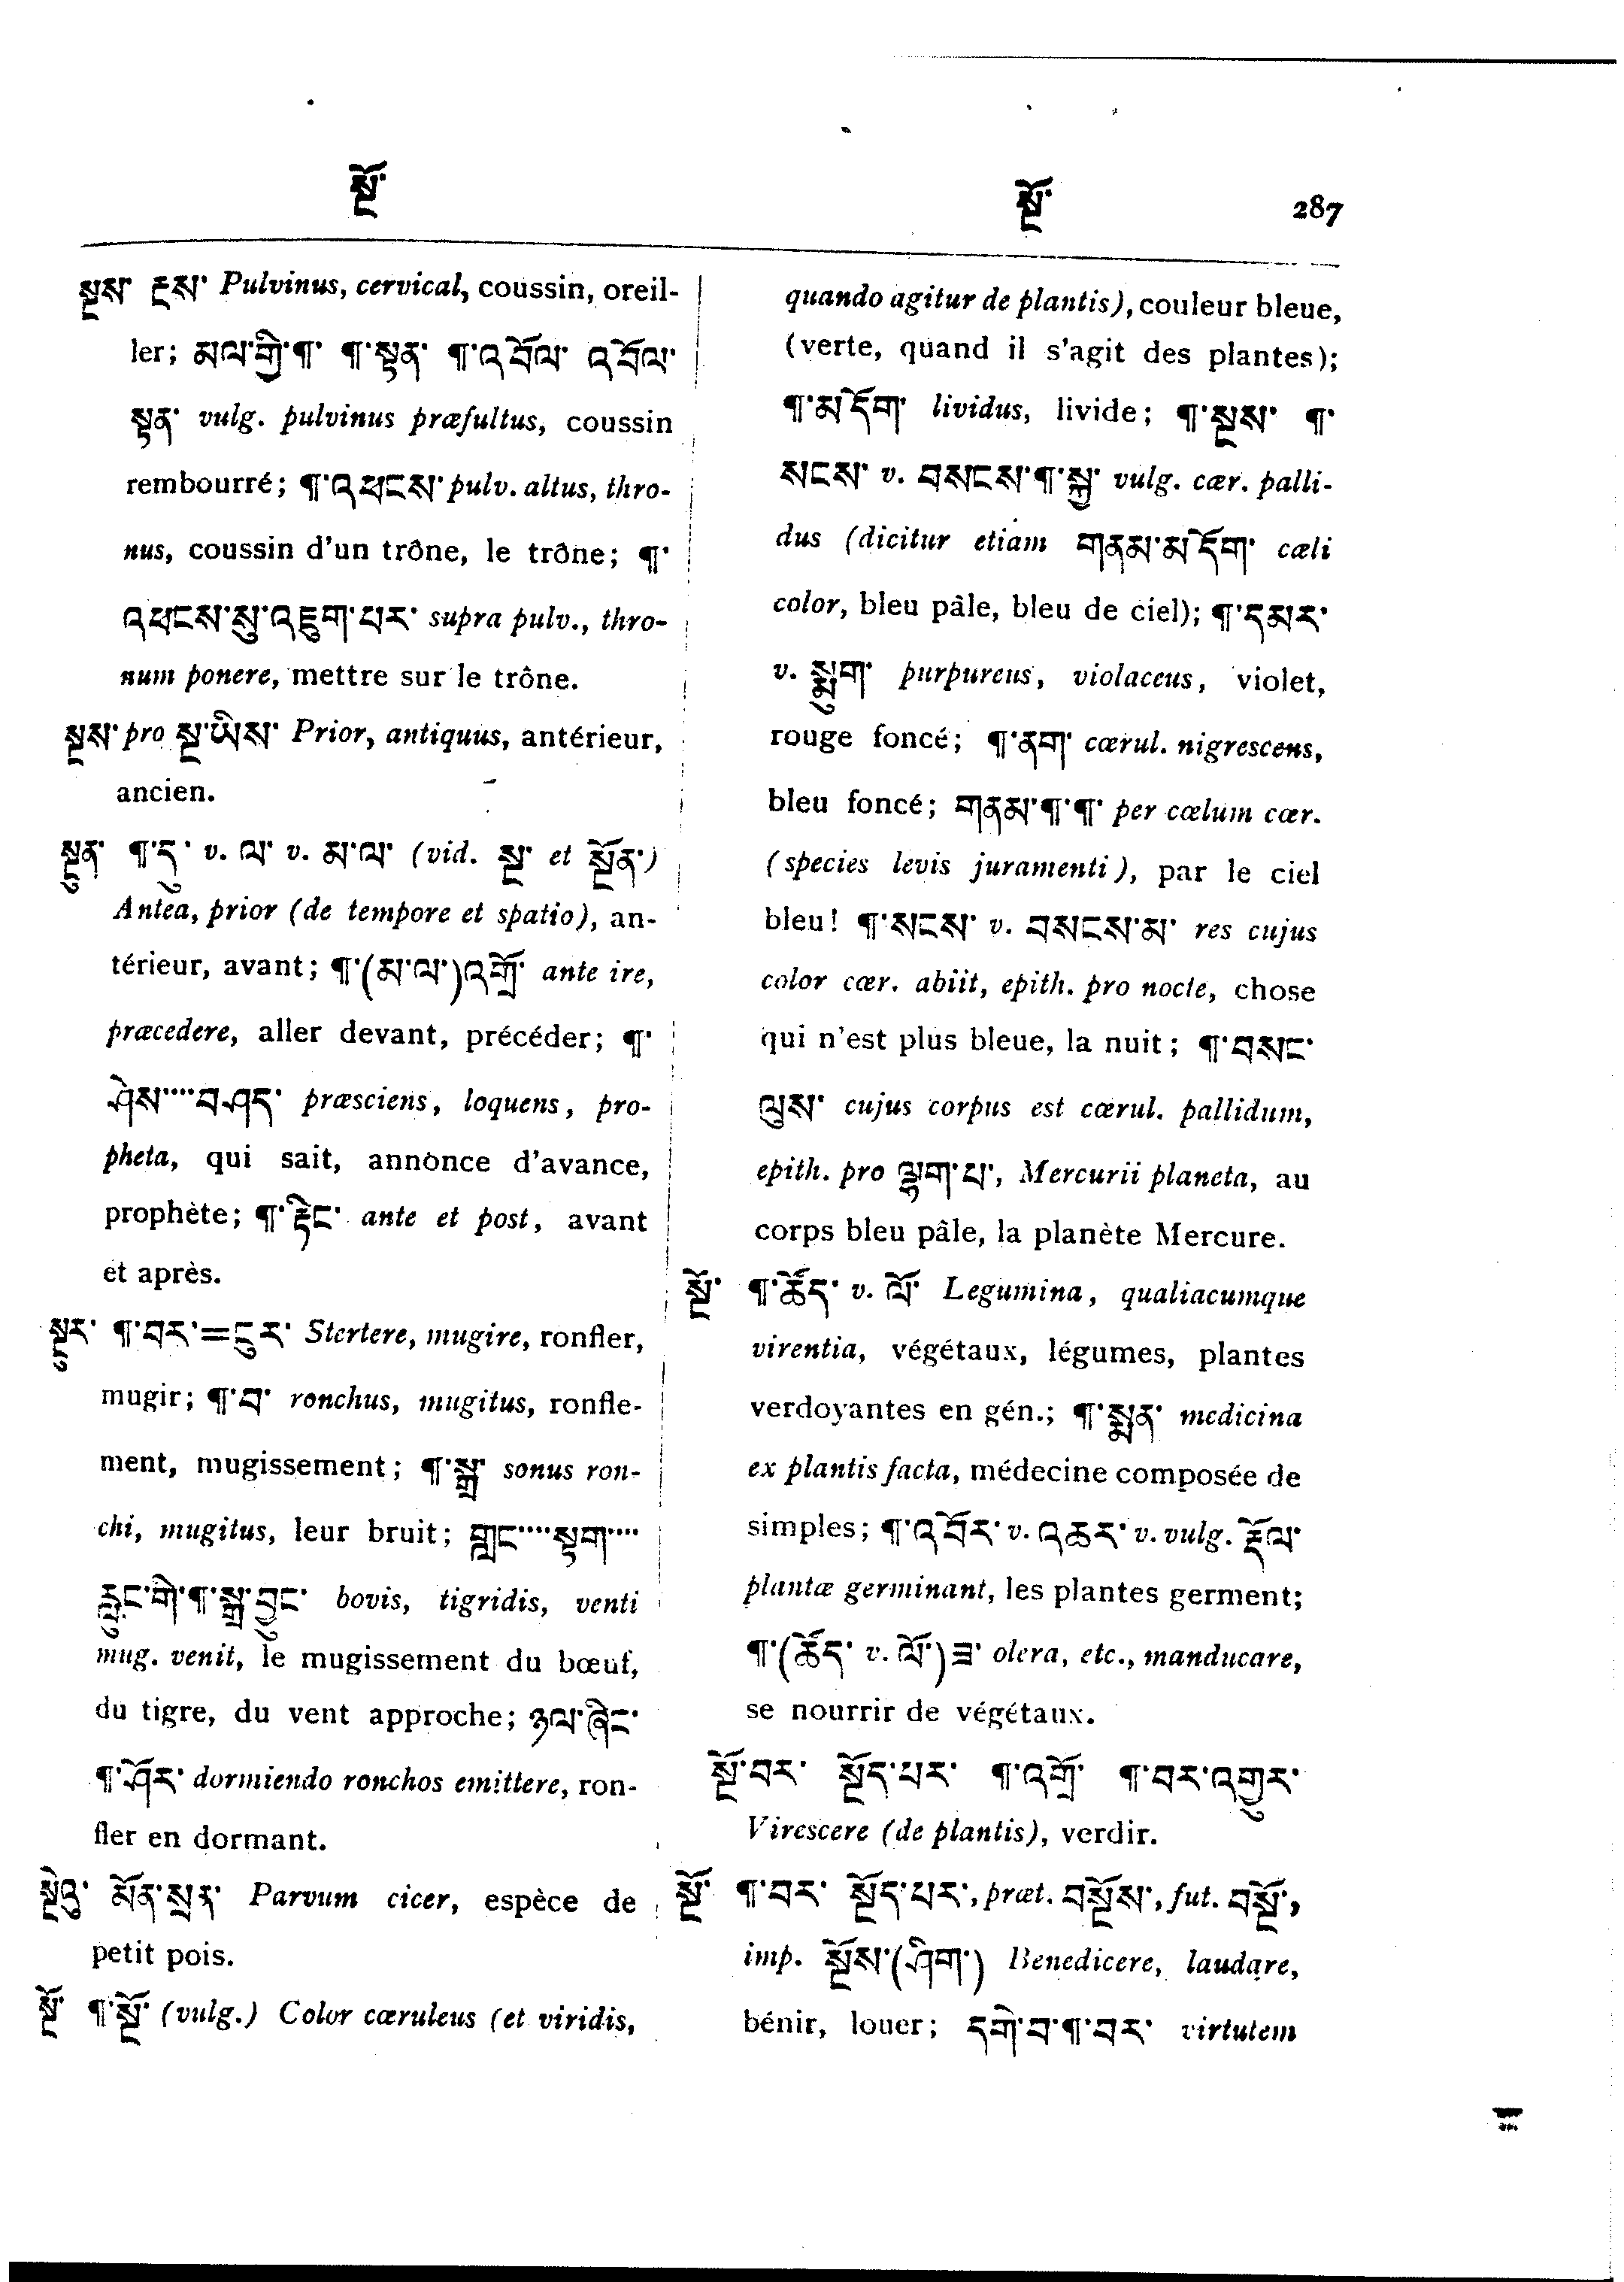 སྔོ་
སྔོ་ 287
སྔས་ ངས་ Pulvinus, cervical, coussin, oreil-
ler; མལ་གྱི་¶་ ¶་སྟན་ ¶་འབོལ་ འབོལ་
སྟན་ vulg. pulvinus præfultus, coussin
rembourré; ¶་འཕངས་ pulv. altus, thro-
nus, coussin d'un trône, le trône; ¶་
འཕངས་སུ་འཇུག་པར་ supra pulv., thro-
num ponere, mettre sur le trône.
སྔས་ pro སྔ་ཡིས་ Prior, antiquus, antérieur,
ancien.
སྔུན་ ¶་དུ་ v. ལ་ v. མ་ལ་ (vid. སྔ་ et སྔོན་)
Antea, prior (de tempore et spatio), an-
térieur, avant; ¶་(མ་ལ་)འགྲོ་ ante ire,
præcedere, aller devant, précéder; ¶་
ཤེས་....བཤད་ præsciens, loquens, pro-
pheta, qui sait, annonce d'avance,
prophète; ¶་རྟིང་ ante et post, avant
et après.
སྔུར་ ¶་བར་=ངུར་ Stertere, mugire, ronfler,
mugir; ¶་བ་ ronchus, mugitus, ronfle-
ment, mugissement; ¶་སྒྲ་ sonus ron-
chi, mugitus, leur bruit; གླང་....སྟག་....
རླུང་གི་¶་སྒྲ་བྱུང་ bovis, tigridis, venti
mug. venit, le mugissement du bœuf,
du tigre, du vent approche; ཉལ་ཞིང་
¶་ཤོར་ dormiendo ronchos emittere, ron-
fler en dormant.
སྔེའུ་ མོན་སྲན་ Parvum cicer, espèce de
petit pois.
སྔོ་ ¶་སྔོ་ (vulg.) Color cæruleus (et viridis,
quando agitur de plantis), couleur bleue,
(verte, quand il s'agit des plantes);
¶་མདོག་ lividus, livide; ¶་སྔས་ ¶་
སངས་ v. བསངས་¶་སྐྱ་ vulg. cær. palli-
dus (dicitur etiam གནམ་མདོག་ cæli
color, bleu pâle, bleu de ciel); ¶་དམར་
v. སྨུག་ purpureus, violaceus, violet,
rouge foncé; ¶་ནག་ cærul. nigrescens,
bleu foncé; གནམ་¶་¶་ per cælum cær.
(species levis juramenti), par le ciel
bleu! ¶་སངས་ v. བསངས་མ་ res cujus
color cær. abiit, epith. pro nocte, chose
qui n'est plus bleue, la nuit; ¶་བསང་
ལུས་ cujus corpus est cærul. pallidum,
epith. pro ལྷག་པ་, Mercurii planeta, au
corps bleu pâle, la planète Mercure.
སྔོ་ ¶་ཚོད་ v. ལོ་ Legumina, qualiacumque
virentia, végétaux, légumes, plantes
verdoyantes en gén.; ¶་སྨན་ medicina
ex plantis facta, médecine composée de
simples; ¶་འབོར་ v. འཆར་ v. vulg. རྡོལ་
plantæ germinant, les plantes germent;
¶་(ཚོད་ v. ལོ་)ཟ་ olera, etc., manducare,
se nourrir de végétaux.
སྔོ་བར་ སྔོད་པར་ ¶་འགྲོ་ ¶་བར་འགྱུར་
Virescere (de plantis), verdir.
སྔོ་ ¶་བར་ སྔོད་པར་, præt. བསྔོས་, fut. བསྔོ་,
imp. སྔོས་(ཤིག་) Benedicere, laudare,
bénir, louer; དགེ་བ་¶་བར་ virtutem